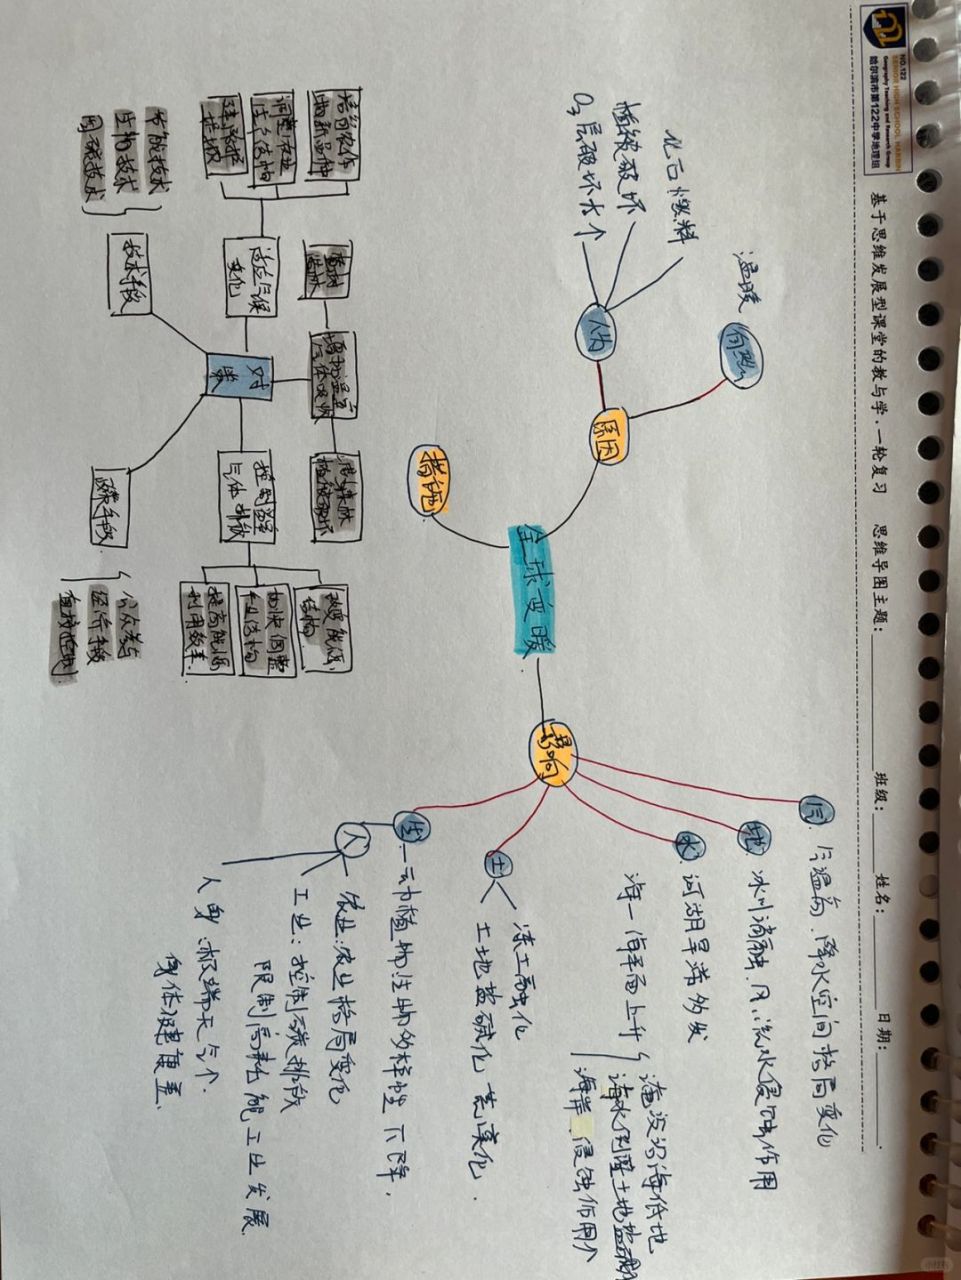 NO.122
SENIOR HIGH SCHOOL HARBIN
Geography Teaching and Research Group
哈尔滨市第122中学地理组
基于思维发展型课堂的教与学·一轮复习 思维导图主题：
班级：
姓名：
日期：
全球变暖
原因
自然
温暖
人为
化石燃料
植被破坏
O₃层破坏大个
措施
对策
适应气候
变化
培育农作
物新品种
调整农业
生产结构
建设防护
堤坝
增加温室
气体吸收
植树
造林
减少森林
植被破坏
控制温室
气体排放
提高能源
利用效率
加快调整
产业结构
能源
结构
技术手段
节能技术
生物技术
固碳技术
政策手段
公众参与
经济手段
直接控制
影响
气
气温高，降水空间格局变化
地
冰川消融，风、流水侵蚀作用
水
河湖旱涝多发
海—海平面上升
淹没沿海低地
海水倒灌土地盐碱
海岸侵蚀作用个
土
冻土融化
土地盐碱化 荒漠化.
生
—动植物，生物多样性下降.
人
农业：农业格局变化
工业：控制碳排放
限制高耗能工业发展
人身：极端天气个.
身体健康差.
小红书